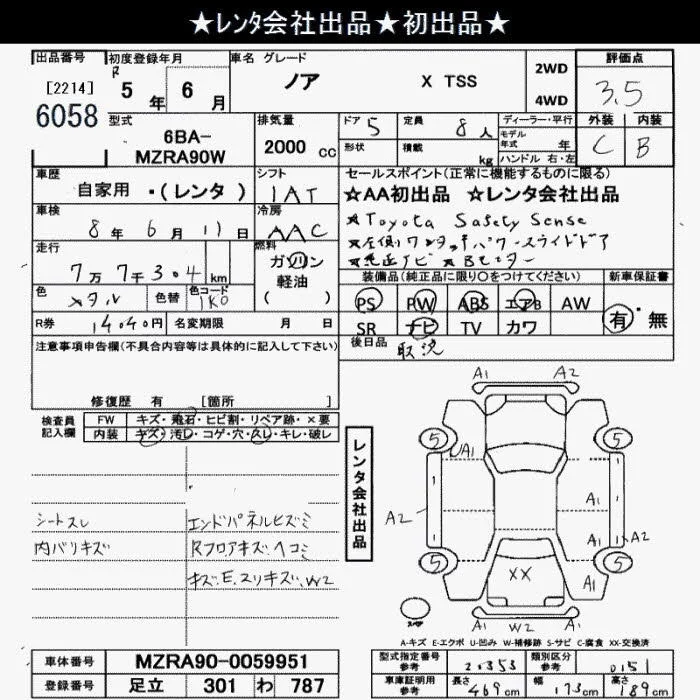 ★レンタ会社出品★初出品★
出品番号 初度登録年月 車名 グレード 評価点
[2214] R 5年 6月 ノア X TSS 2WD 4WD 3.5
6058
型式 排気量 ドア 5 定員 8人 ディーラー・平行 外装 内装
6BA-MZRA90W 2000cc 形状 積載 kg モデル年式 年 ハンドル 右・左 C B
車歴 シフト セールスポイント(正常に機能するものに限る)
自家用 ・(レンタ) IAT ★AA初出品 ☆レンタ会社出品
車検 冷房 ★Toyota Safety Sense
8年 6月 11日 AAC ★左側ワンタッチパワースライドドア
走行 燃料 ★純正ナビ ★Bモニター
7万7千304km ガソリン 軽油 ( ) 装備品(純正品に限り○をつけてください) 新車保証書
色 メタル 色替 色コード 1K0 PS PW ABS エアB AW 有・無
R券 14040円 名変期限 月 日 SR ナビ TV カワ
注意事項申告欄(不具合内容等は具体的に記入して下さい) 後日品 取説
修復歴 有 [箇所 ]
検査員記入欄 FW キズ・飛石・ヒビ割・リペア跡・×要
内装 キズ・汚レ・コゲ・穴・スレ・キレ・破レ
レンタ会社出品
A1 A2
5 5
UA1 A1
A2 A1 A2
5 5
XX A1 A1
A1 W2 A2
シートスレ エンドパネルヒズミ
内バリキズ Rフロアキズ、ヘコミ
キズ、E、スリキズ、W2
スペア
A-キズ E-エクボ U-凹み W-補修跡 S-サビ C-腐食 XX-交換済
車体番号 MZRA90-0059951 型式指定番号 参考 20353 類別区分 参考 0151
登録番号 足立 301 わ 787 車庫証明用 参考 長さ 469cm 幅 173cm 高さ 189cm